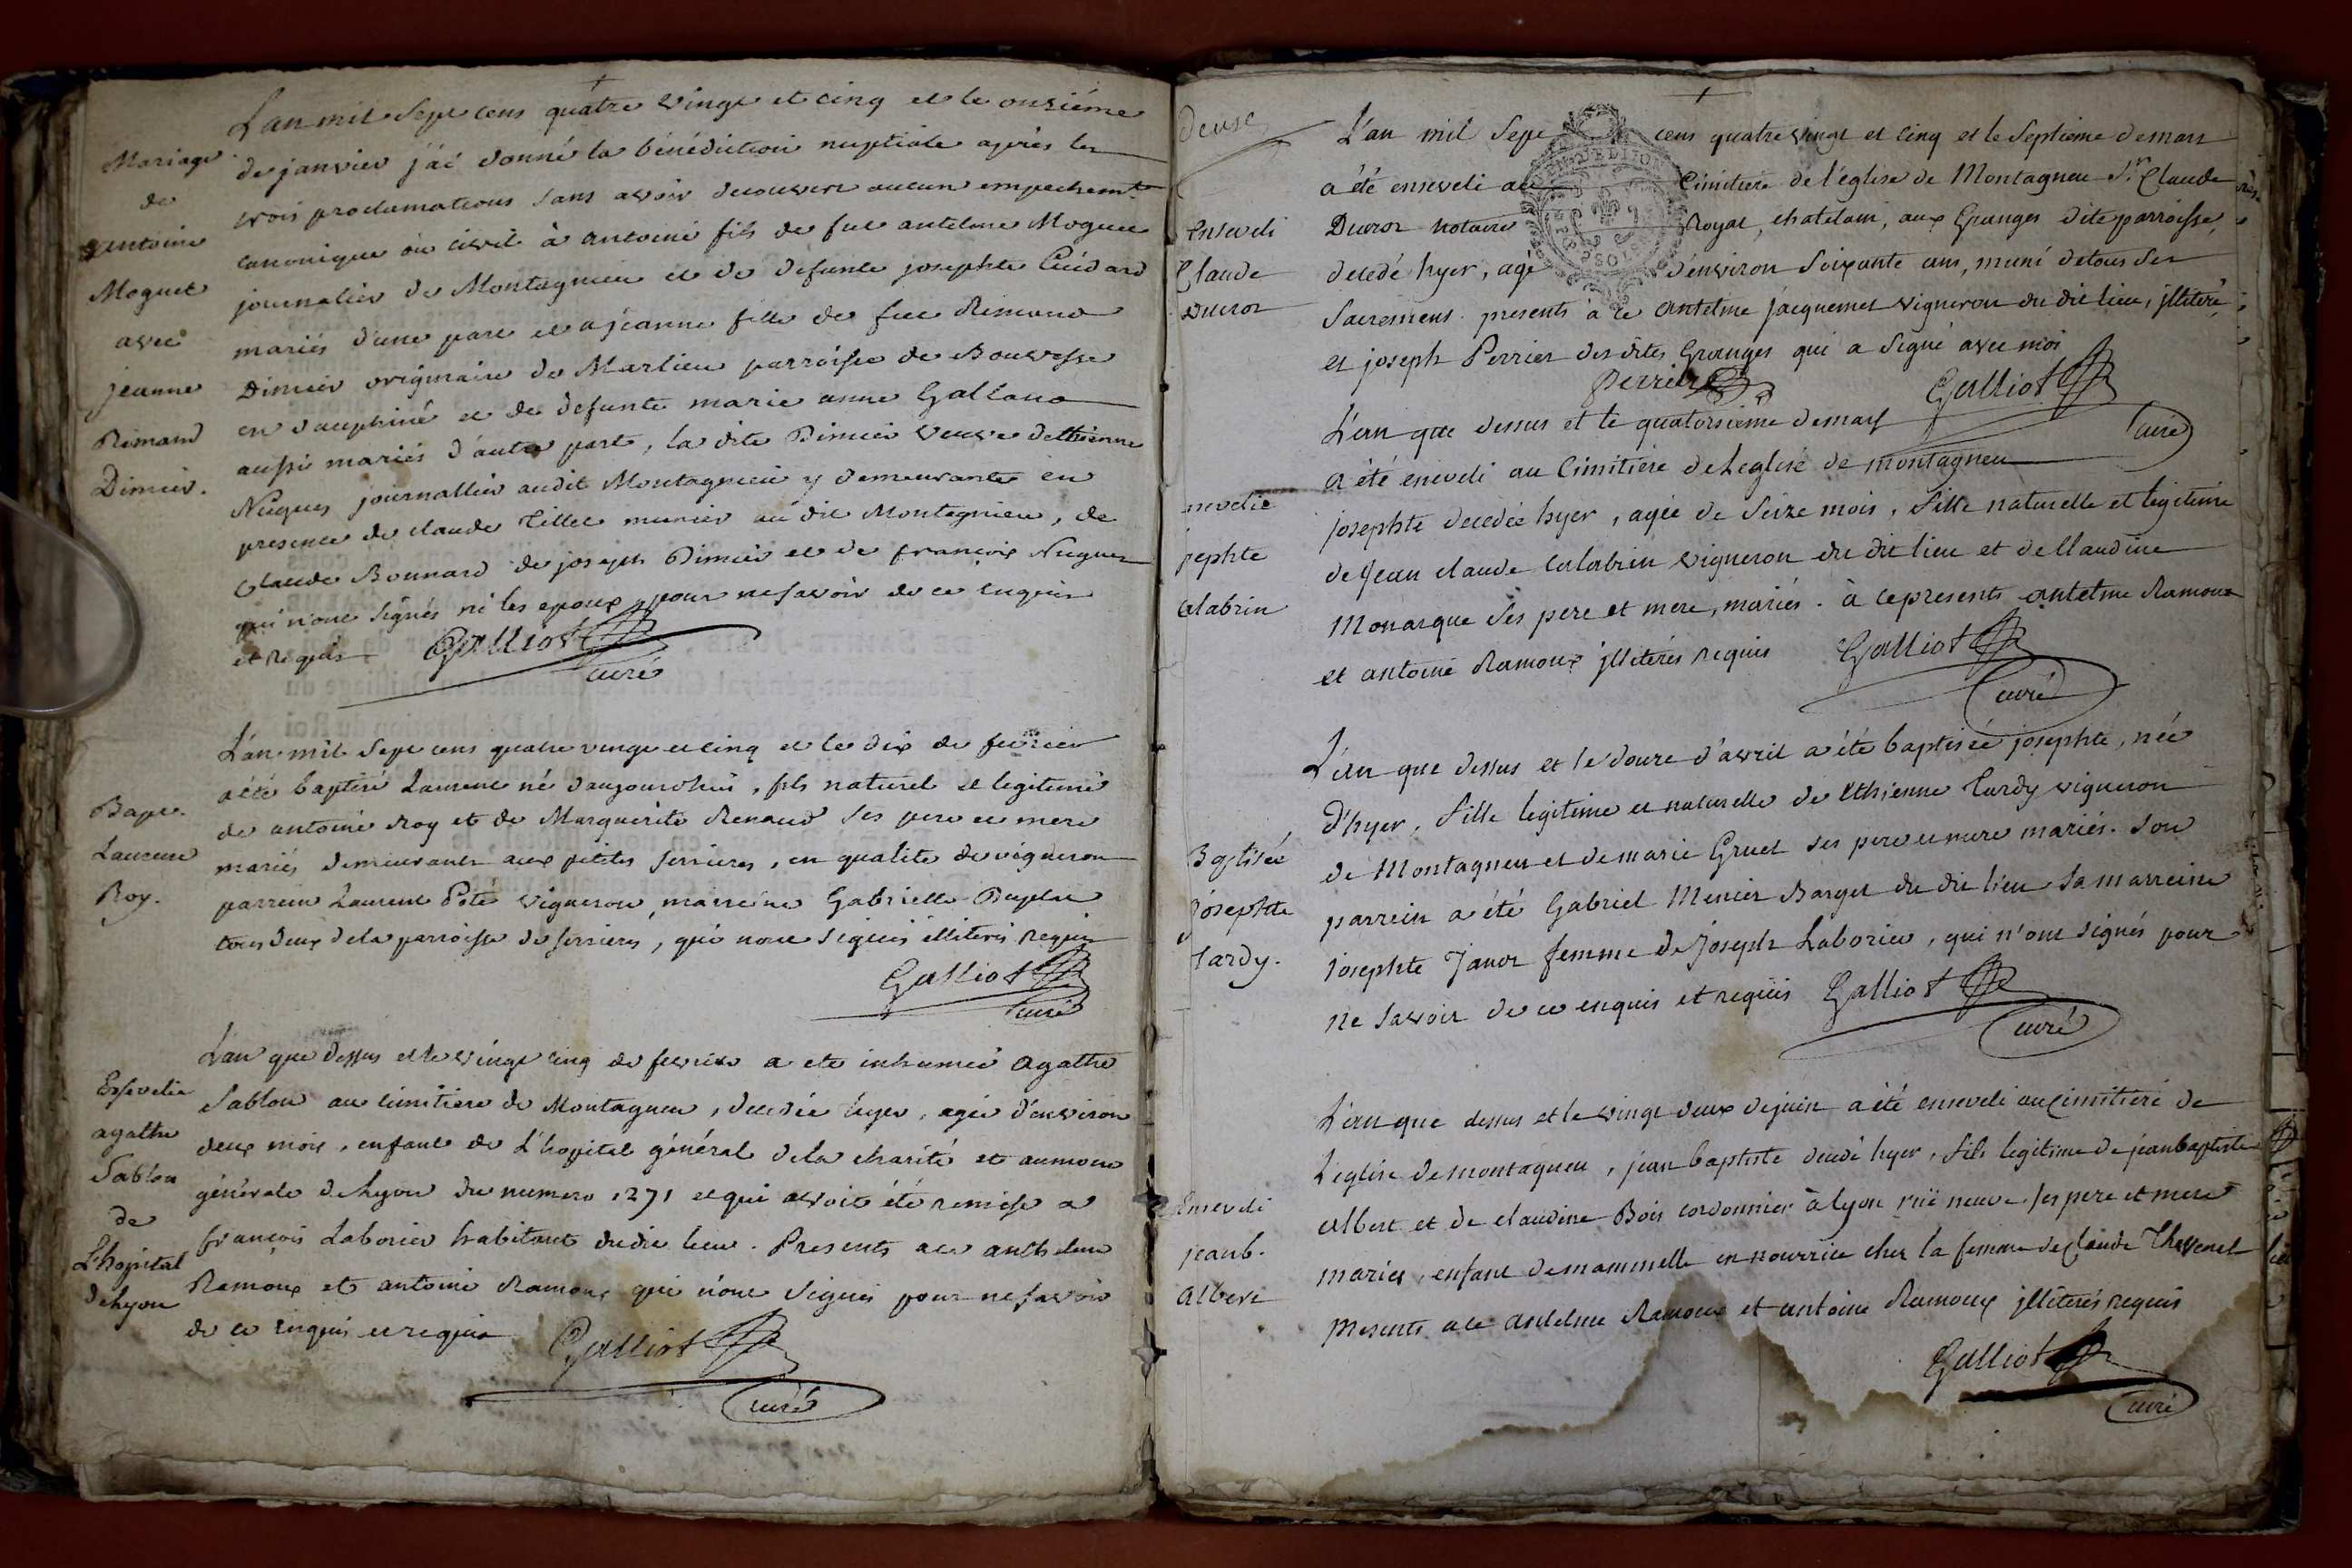 L'an mil Sept cens quatre vingt et cinq et le onziéme
de janvier j'ai donné la bénédiction nuptiale après les
trois proclamations sans avoir decouvert aucun empechemt
canonique ou civil à antoine fils de feu antelme Moguet
journalier de Montagnieu et de defunte josephte Cuidard
mariés d'une part et a jeanne fille de feu Rimand
Dimier originaire de Marlieu parroisse de Bouvesse
en dauphiné et de defunte marie anne Galland
aussi mariés d'autre part, la dite Dimier veuve d'ethienne
Nugues journallier audit Montagnieu y demeurante en
presence de claude Tillet munier au dit Montagnieu, de
Claude Bonnard de joseph Dimier et de françois Nugues
qui n'ont signés ni les epoux pour ne savoir de ce enquis
et requis Galliot
curé
Mariage
de
antoine
Moguet
avec
jeanne
Rimand
Dimier.
L'an mil Sept cens quatre vingt et cinq et le dix de fevrier
a été baptisé Laurent né d'aujourdhui, fils naturel et legitime
de antoine Roy et de Marguerite Renaud ses pere et mere
mariés demeurants aux petites serrieres, en qualite de vigneron
parrein Laurent Poté vigneron, marreine Gabrielle
tous deux de la parroisse de serrieres, qui n'ont signés illiterés requis
Galliot
curé
Bapt.
Laurent
Roy.
L'an que dessus et le vingt cinq de fevrier a ete inhumée agathe
Sablon au cimitiere de Montagneu, decedée hyer, agée d'environ
deux mois, enfant de L'hopital général de la charité et aumone
générale de Lyon du numero 1271 et qui avoit été remise a
françois Laborier habitant dudit lieu. Presents a ce anthelme
Ramoux et antoine Ramoux qui n'ont signés pour ne savoir
de ce enquis et requis Galliot
curé
Ensevelie
agathe
Sablon
de
L'hopital
de Lyon
L'an mil Sept cens quatre vingt et cinq et le Septieme de mars
a été enseveli au Cimitiere de l'église de Montagneu Sr Claude
Ducros notaire Royal, chatelain, aux Granges dite parroisse,
decedé hyer, agé d'environ soixante ans, muni de tous ses
Sacremens. presents à ce antelme jacquemet vigneron du dit lieu, jlliteré,
et joseph Perrier des dites Granges qui a signé avec moi
Perrier Galliot
curé
Enseveli
Claude
Ducros
L'an que dessus et le quatorsieme de mars
a été eneveli au Cimitiére de Leglise de montagneu
josephte decedée hyer, agée de seize mois, fille naturelle et legitime
de Jean claude calabrin vigneron du dit lieu et de Claudine
Monarque ses pere et mere, mariés. à ce presents antelme Ramoux
et antoine Ramoux jlliterés requis Galliot
curé
nevelie
sephte
alabrin
L'an que dessus et le douze d'avril a été baptisée josephte, née
d'hyer, fille legitime et naturelle de Ethienne Tardy vigneron
de Montagneu et de marie Gruet ses pere et mere mariés. Son
parrein a été Gabriel Menier Barget du dit lieu sa marreine
josephte Janot femme de joseph Laborier, qui n'ont signés pour
ne savoir de ce enquis et requis Galliot
curé
Baptisée
josephte
Tardy.
L'an que dessus et le vingt deux de juin a été enseveli au cimitiere de
L'eglise de montagneu, jean baptiste decedé hyer, fils legitime de jean baptiste
albert et de claudine Bois cordonnier à lyon ruë neuve ses pere et mere
mariés, enfant de mammelle en nourrice chez la femme de claude Thevenet
presents a ce antelme Ramoux et antoine Ramoux jlliterés requis
Galliot
curé
Enseveli
jean b.
albert